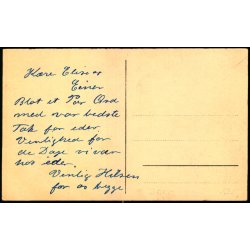 Kære Elise og
Einer
Blot et Par Ord
med vor bedste
Tak for eder
Venlighed for
de Dage vi var
hos eder.
Venlig Hilsen
for os begge